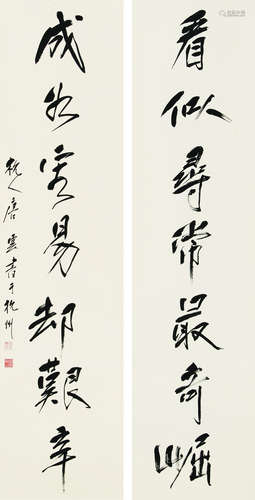 看似尋常最奇崛
成如容易却艱辛
杭人唐雲書于杭州